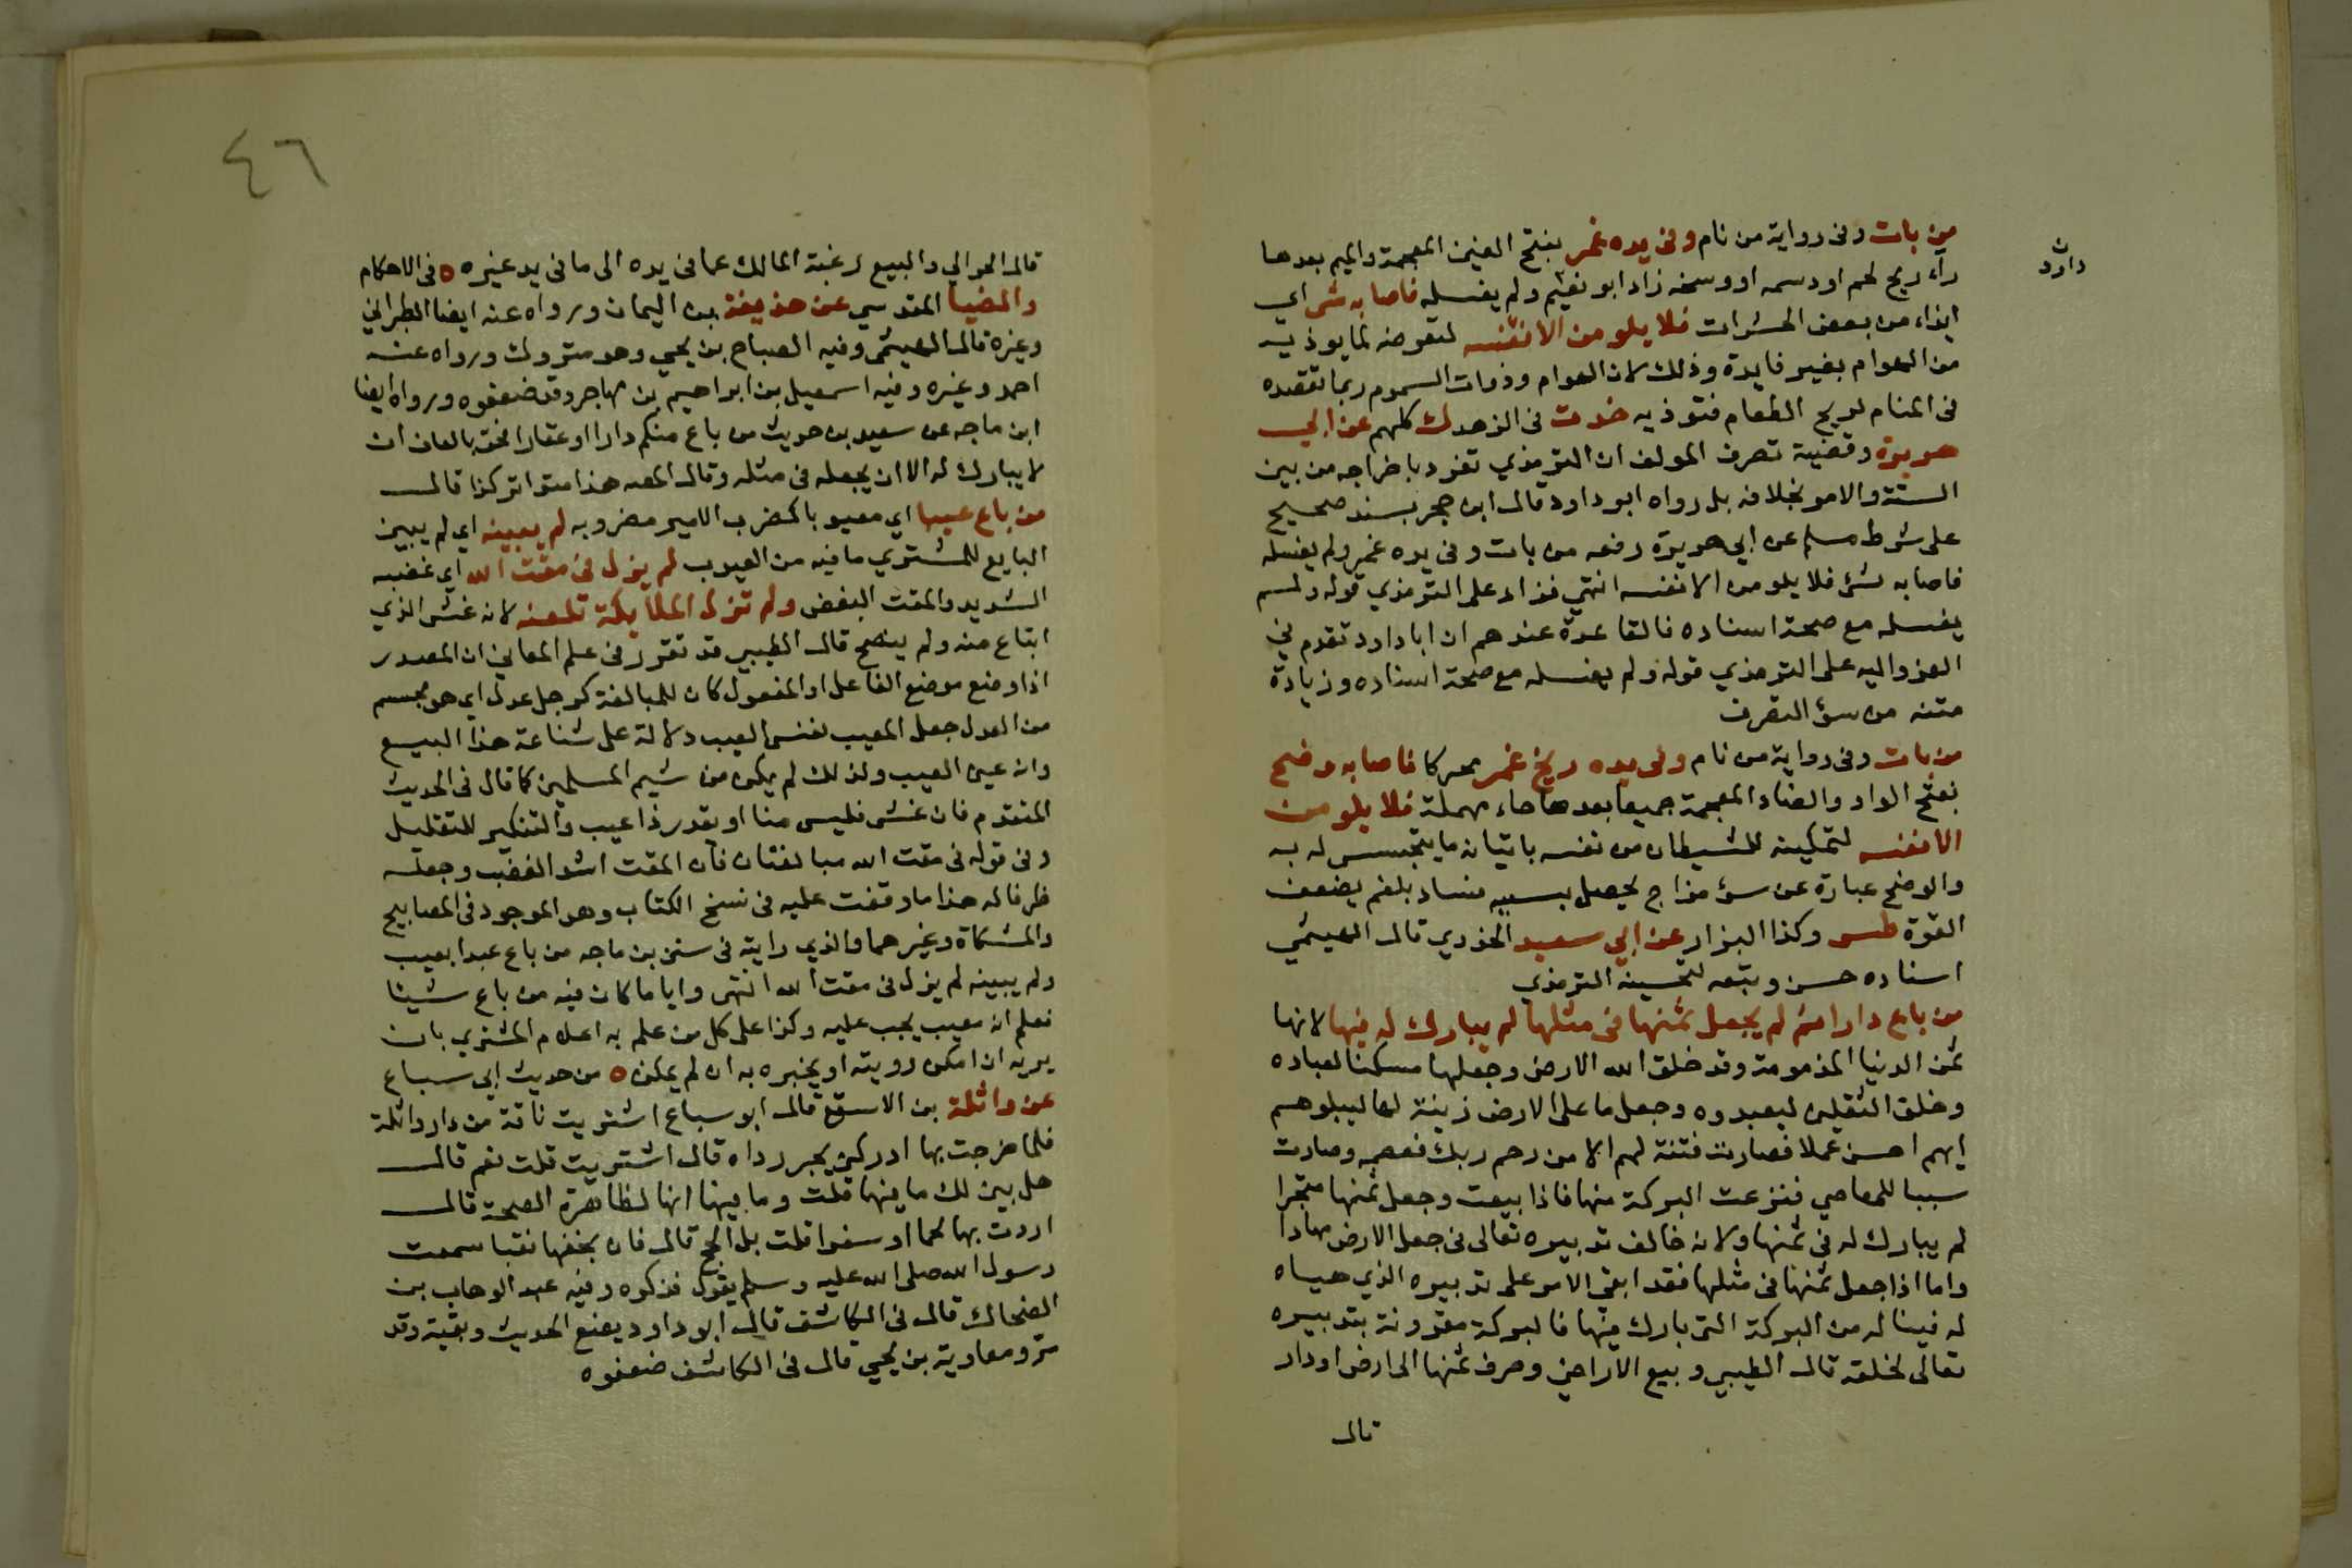 من بات وفى رواية من نام وفى يده غمر بفتح الغين المعجمة والميم بعدها
راء ريح لحم او دسمه او وسخه زاد ابو نعيم ولم يغسله فاصابه شى اي
ايذاء من بعض الحشرات فلا يلومن الا نفسه لتعرضه لما يوذيه
من الهوام بغير فايدة وذلك لان الهوام وذوات السموم ربما تقصده
فى المنام لريح الطعام فتوذيه خدت فى الزهد ك كلهم عن ابي
هريرة وقضية تصرف المولف ان الترمذي تفرد باخراجه من بين
الستة والامر بخلافه بل رواه ابو داود قال ابن حجر بسند صحيح
على شرط مسلم عن ابي هريرة رفعه من بات وفى يده غمر ولم يغسله
فاصابه شئ فلا يلومن الا نفسه انتهي فزاد على الترمذي قوله ولم
يغسله مع صحة اسناده فالقاعدة عندهم ان ابا داود تقدم في
العزو اليه على الترمذي قوله ولم يغسله مع صحة اسناده وزيادة
متنه من سؤ التصرف
من بات وفى رواية من نام وفى يده ريح غمر محركا فاصابه وضح
بفتح الواو والضاد المعجمة جميعا بعدها حاء مهملة فلا يلومن
الا نفسه لتمكينه للشيطان من نفسه باتيانه ما يتجسس له به
والوضح عبارة عن سؤ مزاج يحصل بسببه فساد بلغم يضعف
القوة طس وكذا البزار عن ابي سعيد الخدري قال الهيثمي
اسناده حسن وتبعه لتحسينه الترمذي
من باع دارا ثم لم يجعل ثمنها فى مثلها لم يبارك له فيها لانها
ثمن الدنيا المذمومة وقد خلق الله الارض وجعلها مسكنا لعباده
وخلق الثقلين ليعبدوه وجعل ما على الارض زينة لها ليبلوهم
ايهم احسن عملا فصارت فتنة لهم الا من رحم ربك فعصمه وصارت
سببا للمعاصي فنزعت البركة منها فاذا بيعت وجعل ثمنها متجرا
لم يبارك له فى ثمنها ولانه خالف تدبيره تعالى فى جعل الارض مهادا
واما اذا جعل ثمنها فى مثلها فقد ابقى الامر على تدبيره الذي هياه
له فيناله من البركة التى بارك فيها فالبركة مقرونة بتدبيره
تعالى لخلقه قال الطيبي وبيع الاراضي وصرف ثمنها الى ارض او دار
قال
داود
٤٦
قال الحرالي والبيع رغبة المالك عما فى يده الى ما فى يد غيره ه فى الاحكام
والضيا المقدسي عن حذيفة بن اليمان ورواه عنه ايضا الطبراني
وغيره قال الهيثمى وفيه الصباح بن يحي وهو متروك ورواه عنه
احمد وغيره وفيه اسمعيل بن ابراهيم بن مهاجر وقد ضعفوه ورواه ايضا
ابن ماجه عن سعيد بن حريث من باع منكم دارا او عقارا فحق بالعان ان
لا يبارك له الا ان يجعله فى مثله وقال المصه هذا متواتر كذا قال
من باع عيبا اي معيبو با كضرب الامير مضروبه لم يبينه اي لم يبين
البايع للمشتري ما فيه من العيوب لم يزل فى مقت الله اي غضبه
الشديد والمقت البغض ولم تزل الملايكة تلعنه لانه غش الذي
ابتاع منه ولم ينصح قال الطيبي قد تقرر فى علم المعاني ان المصدر
اذا وضع موضع الفاعل او المفعول كان للمبالغة كرجل عدل اي هو مجسم
من العدل جعل المعيب نفس العيب دلالة على شناعة هذا البيع
وانه عين العيب ولذلك لم يكن من شيم المسلمين كما قال فى الحديث
المتقدم فان غش فليس منا او يقدر ذا عيب والتنكير للتقليل
وفى قوله فى مقت الله مبالغتان فان المقت اشد الغضب وجعله
ظرفا له هذا ما وقفت عليه فى نسخ الكتاب وهو الموجود فى المصابيح
والمشكاة وغيرهما والذي رايته فى سنن بن ماجه من باع عبدا بعيب
ولم يبينه لم يزل فى مقت الله انتهى وايا ما كان فيه من باع شيئا
نعلم ان معيب يجب عليه وكذا على كل من علم به اعلام المشتري بان
يريه ان امكن رويته او يخبره به ان لم يمكن ه من حديث ابي سباع
عن واثلة بن الاسقع قال ابو سباع اشتريت ناقة من دار واثلة
فلما خرجت بها ادركني يجر رداه قال اشتريت قلت نعم قال
هل بين لك ما فيها قلت وما فيها انها لظاهرة الصحة قال
اردت بها لحما او سفرا قلت بل الحج قال فان بخفها نقبا سمعت
رسول الله صلى الله عليه وسلم يقول فذكره وفيه عبد الوهاب بن
الضحاك قال فى الكاشف قال ابو داود يضع الحديث وبقية وقد
مر ومعاوية بن يحيي قال فى الكاشف ضعفوه